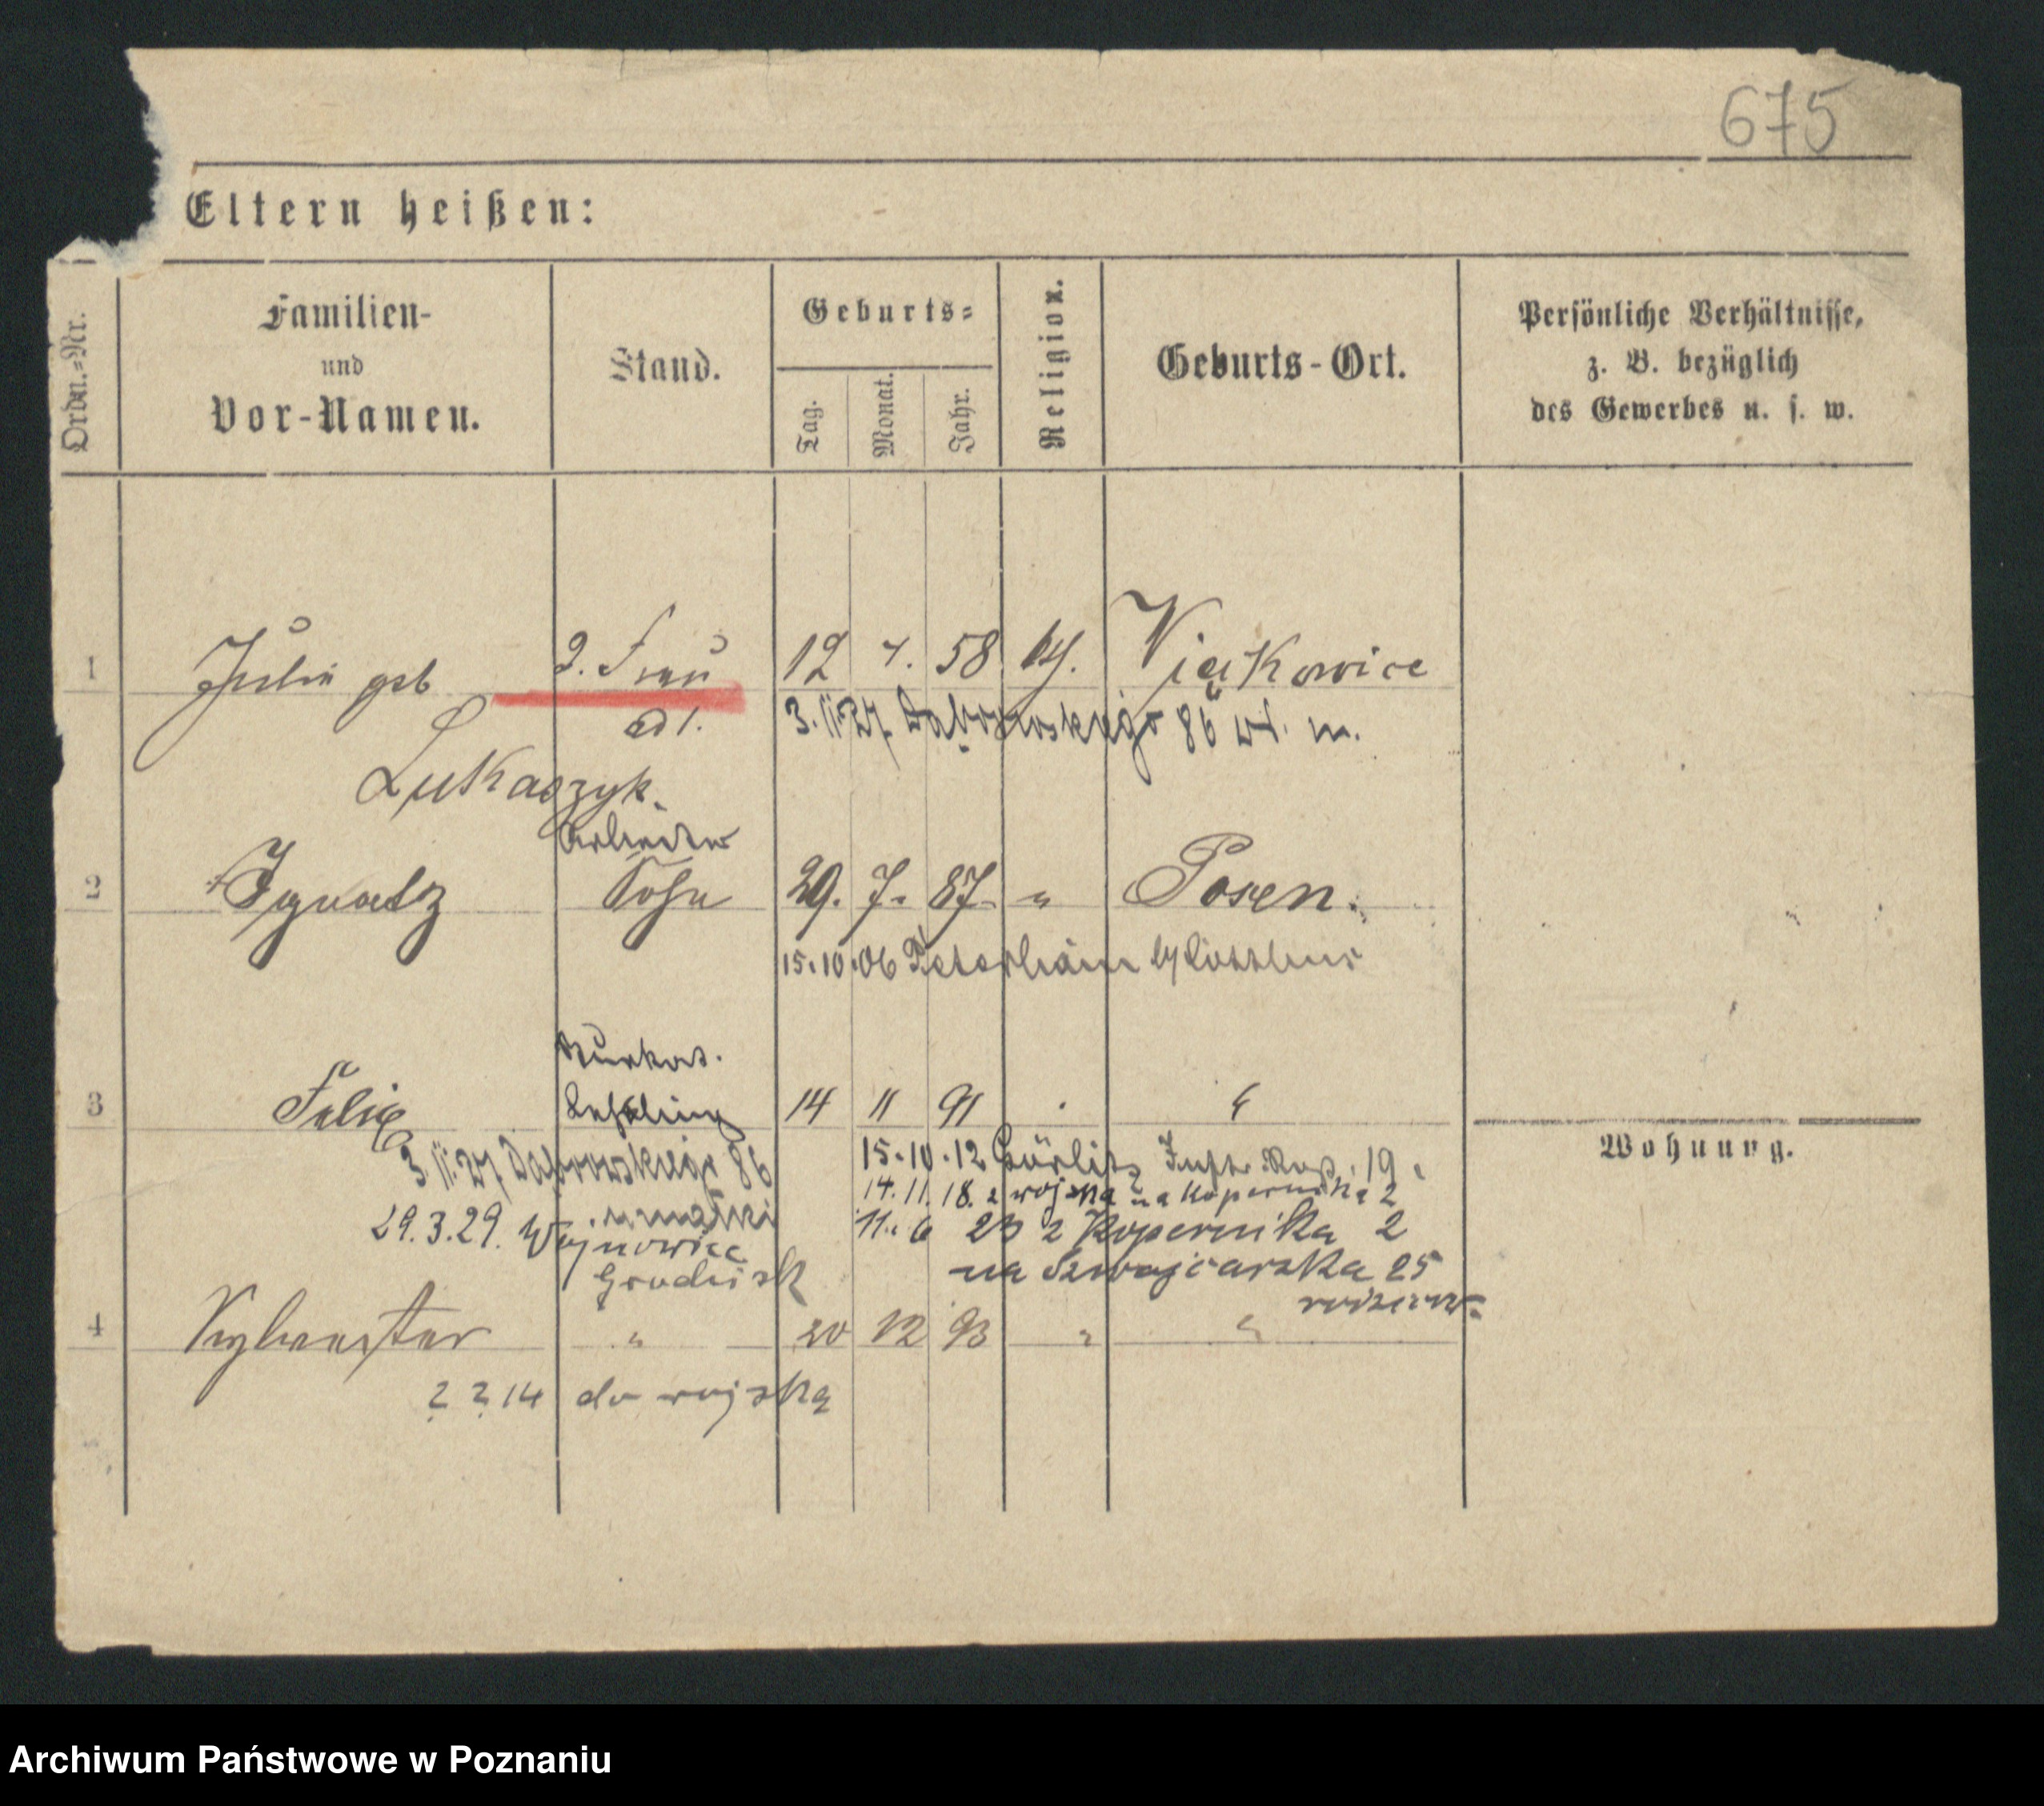 675
Eltern heißen:
Ordn.=Nr.
Familien-
und
Vor-Namen.
Stand.
Geburts=
Tag.
Monat.
Jahr.
Religion.
Geburts-Ort.
Persönliche Verhältnisse,
z. B. bezüglich
des Gewerbes u. s. w.
1 Julie geb 2. Frau 12 58 Więkowice
3.11.27 Dąbrowskiego 86 wł. m.
Lukaszyk.
Arbeiter
2 Ignatz Sohn 29. 7. 87. " Posen.
15.10.06
3 Felix Lehrling 14 11 91
3.11.27 Dąbrowskiego 86
15.10.12 Görlitz 19
14.11.18. z wojska na Kopernika 2
29.3.29. Wojnowice
11. 6 23 z Kopernika 2
Grodzisk
na Szwajcarska 25
4 Sylvester " 20 12 93 " "
14 do wojska
Wohnung.
Archiwum Państwowe w Poznaniu